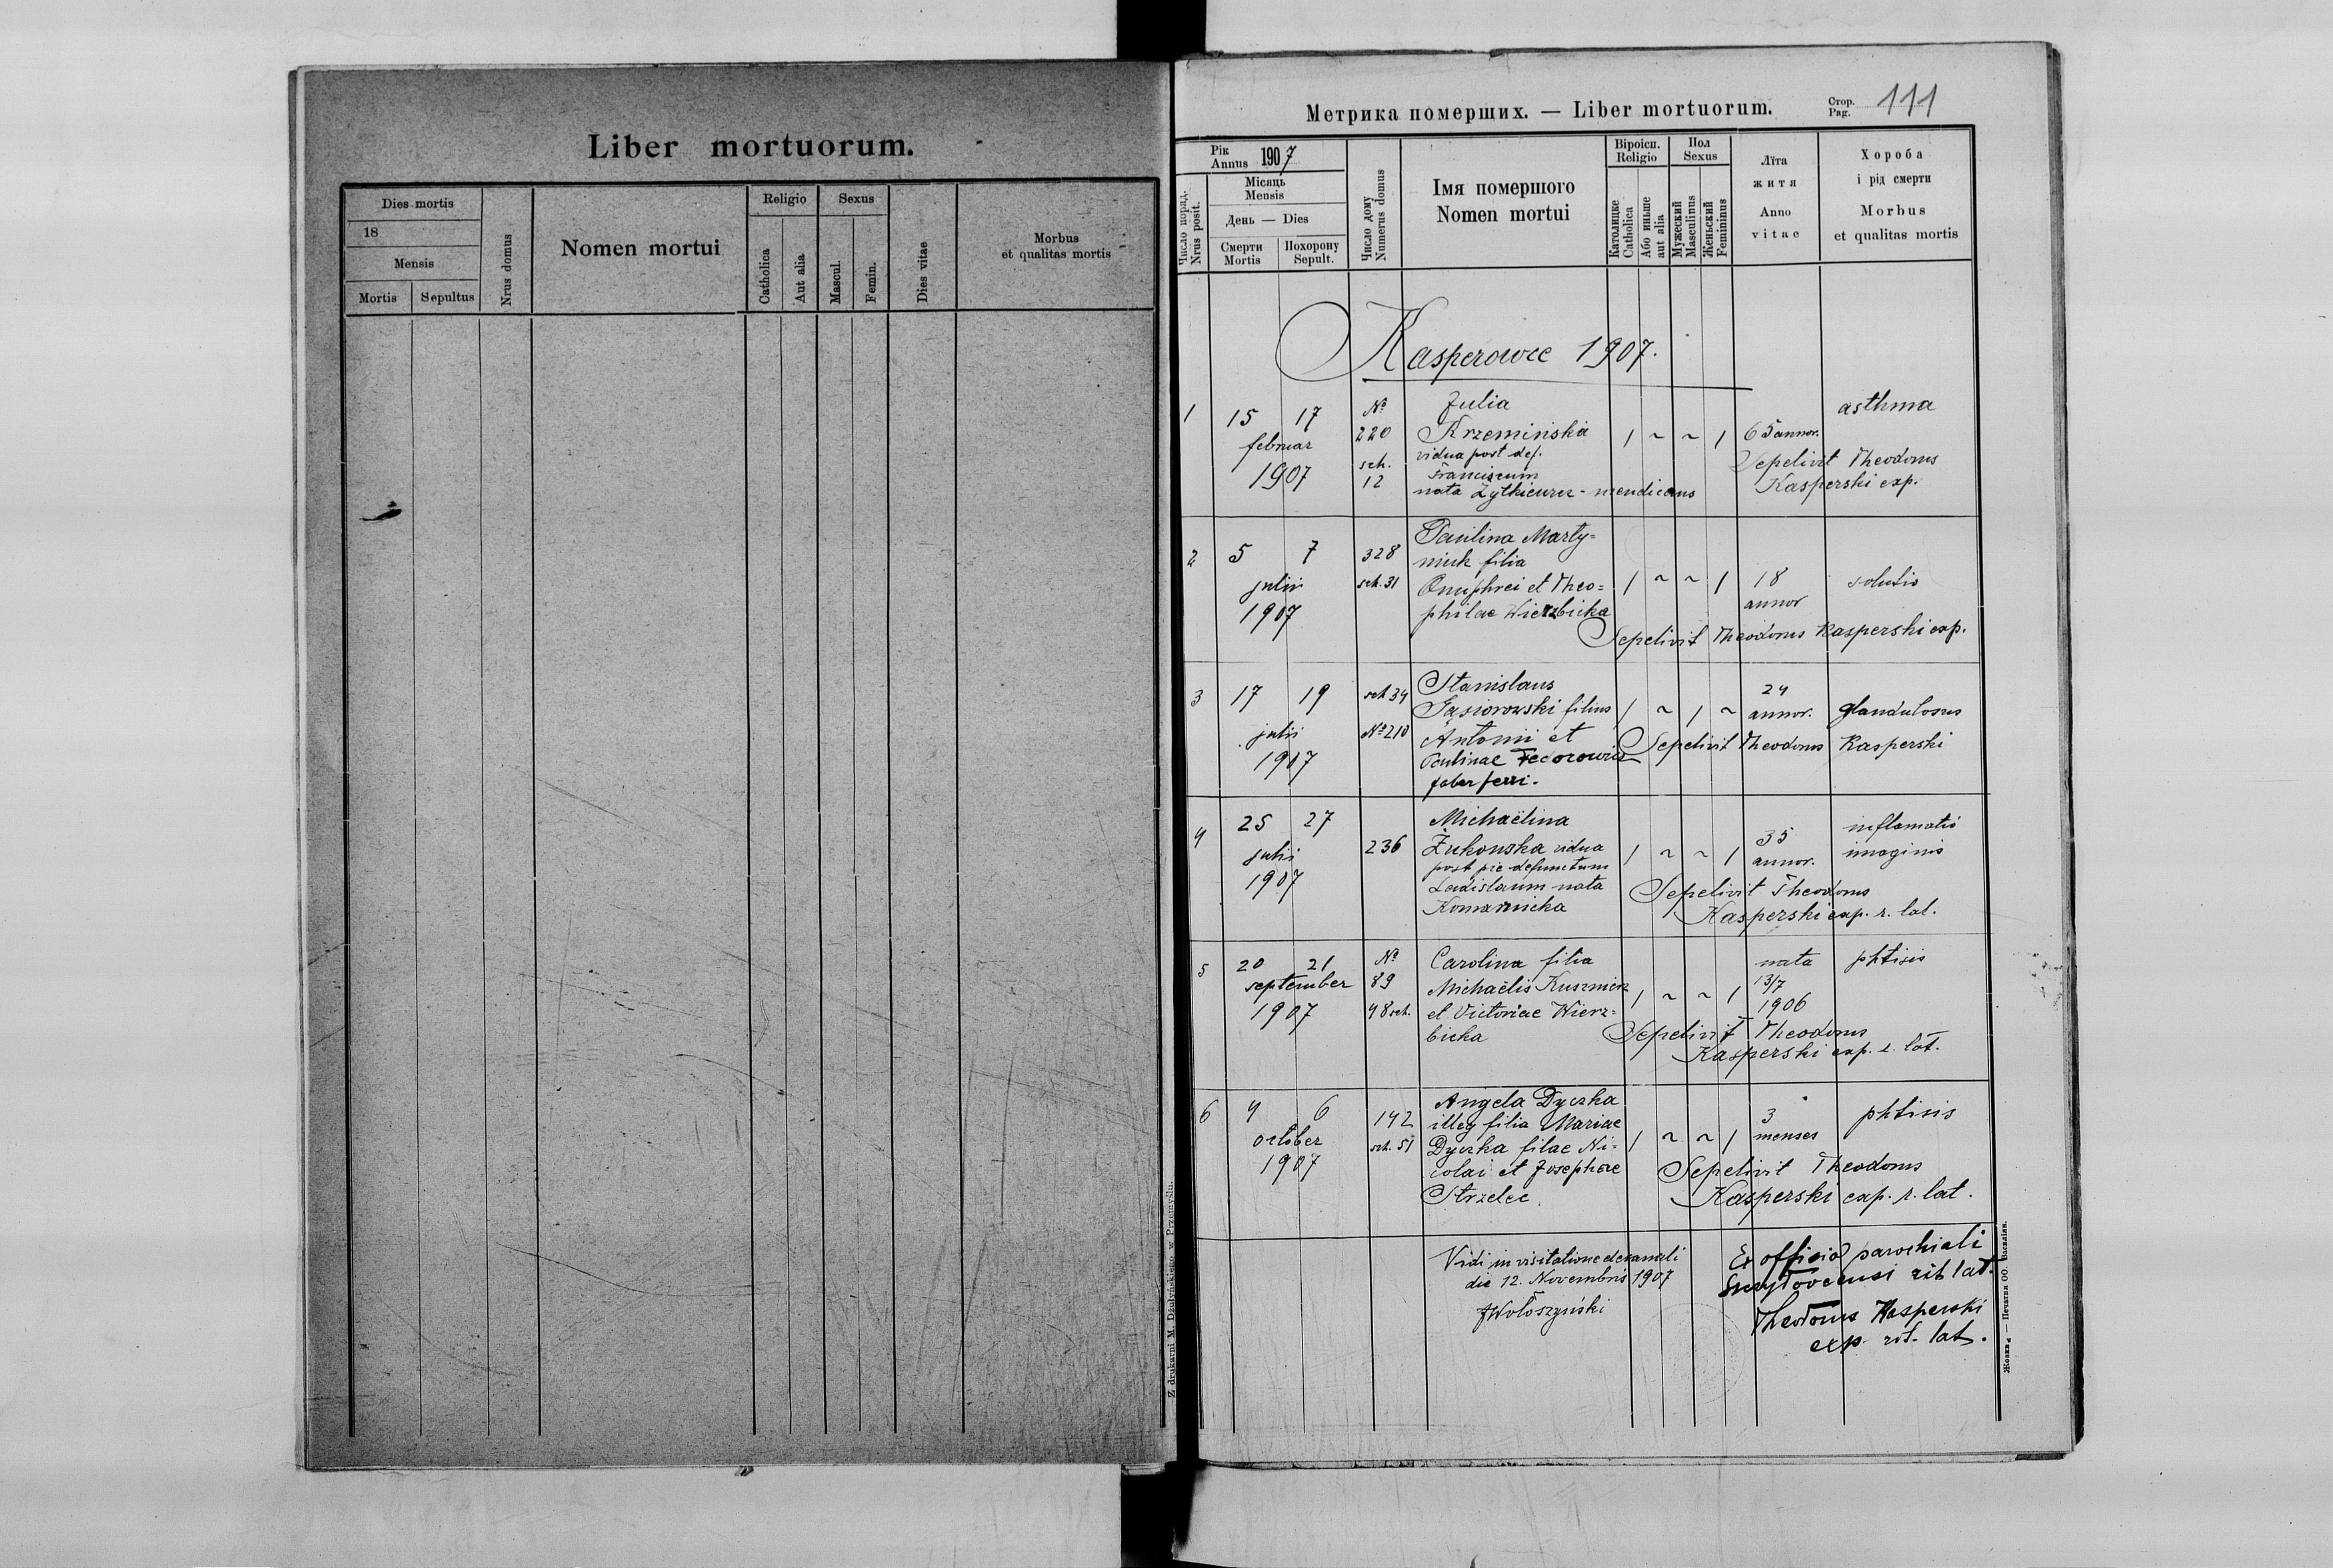 Liber mortuorum.
Dies mortis
18
Mensis
Mortis
Sepultus
Nrus domus
Nomen mortui
Religio
Catholica
Aut alia
Sexus
Mascul.
Femin.
Dies vitae
Morbus
et qualitas mortis
Z drukarni M. Dżułyńskiego w Przemyślu.
Метрика померших. — Liber mortuorum.
Стор.
Pag. 111
Число поряд.
Nrus posit.
Рік
Annus 1907
Місяць
Mensis
День — Dies
Смерти
Mortis
Похорону
Sepult.
Число дому
Numerus domus
Імя помершого
Nomen mortui
Віроісп.
Religio
Католицке
Catholica
Або иньше
aut alia
Пол
Sexus
Мужеский
Masculinus
Женьский
Femininus
Лїта
житя
Anno
vitae
Хороба
і рід смерти
Morbus
et qualitas mortis
Kasperowce 1907.
1 15 17 № Julia asthma
februar 220 Krzemińska 1 ~ ~ 1 65 annor.
vidua post def.
1907 sch. Franciscum Sepelivit Theodorus
12 nata - mendicans Kasperski exp.
2 5 7 328 Paulina Marty=
niuk filia
julii sch. 31 Onuphrei et Theo= 1 ~ ~ 1 18 solutio
1907 philae Wierzbicka annor
Sepelivit Theodorus Kasperski exp.
3 17 19 sch 34 Stanislaus 24
Gąsiorowski filius 1 ~ 1 ~ annor. glandulosus
julii № 210 Antonii et Sepelivit Theodorus Kasperski
1907 Paulinae Fedorowicz
faber ferri.
4 25 27 Michaëlina inflamatio
julii 236 Żukowska vidua 1 ~ ~ 1 35 annor. imaginis
post pie defunctum
1907 Ladislaum nata Sepelivit Theodorus
Komarnicka Kasperski exp. r. lat.
5 20 21 № Carolina filia nata phtisis
september 89 Michaëlis Kuszmierz 1 ~ ~ 1 13/7
1907 48 sch. et Victoriae Wierz= 1906
bicka Sepelivit Theodorus
Kasperski exp. r. lat.
6 4 6 142 Angela Dyczka 3 phtisis
october illeg filia Mariae
sch. 51 Dyczka filae Ni= 1 ~ ~ 1 menses
1907 colai et Josephae Sepelivit Theodorus
Strzelec Kasperski exp. r. lat.
Vidi in visitatione decanali
die 12. Novembris 1907
JWołoszyński
Ex officio parochiali
rit lat.
Theodorus Kasperski
exp. rit. lat.
Жовква — Печатня ОО. Василіян.